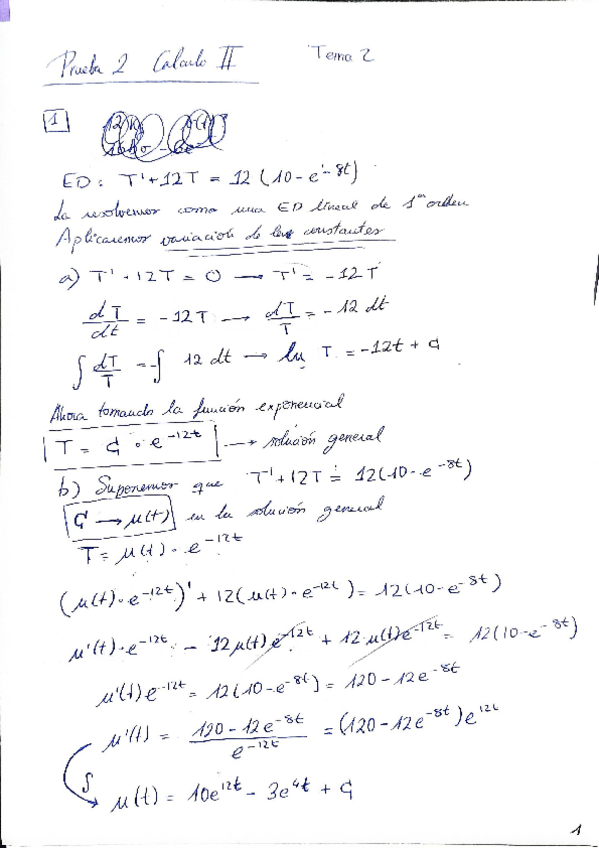 Prueba 2 Calculo II Tema 2
1
ED: T' + 12T = 12(10 - e^-8t)
La resolvemos como una ED lineal de 1er orden
Aplicaremos variación de las constantes
a) T' + 12T = 0 → T' = -12T
dT/dt = -12T → dT/T = -12 dt
∫ dT/T = -∫ 12 dt → ln T = -12t + C
Ahora tomando la función exponencial
T = C · e^-12t → solución general
b) Suponemos que T' + 12T = 12(10 - e^-8t)
C → μ(t) en la solución general
T = μ(t) · e^-12t
(μ(t) · e^-12t)' + 12(μ(t) · e^-12t) = 12(10 - e^-8t)
μ'(t) · e^-12t - 12μ(t)e^-12t + 12μ(t)e^-12t = 12(10 - e^-8t)
μ'(t)e^-12t = 12(10 - e^-8t) = 120 - 12e^-8t
μ'(t) = (120 - 12e^-8t)/e^-12t = (120 - 12e^-8t)e^12t
∫ μ(t) = 10e^12t - 3e^4t + C
1